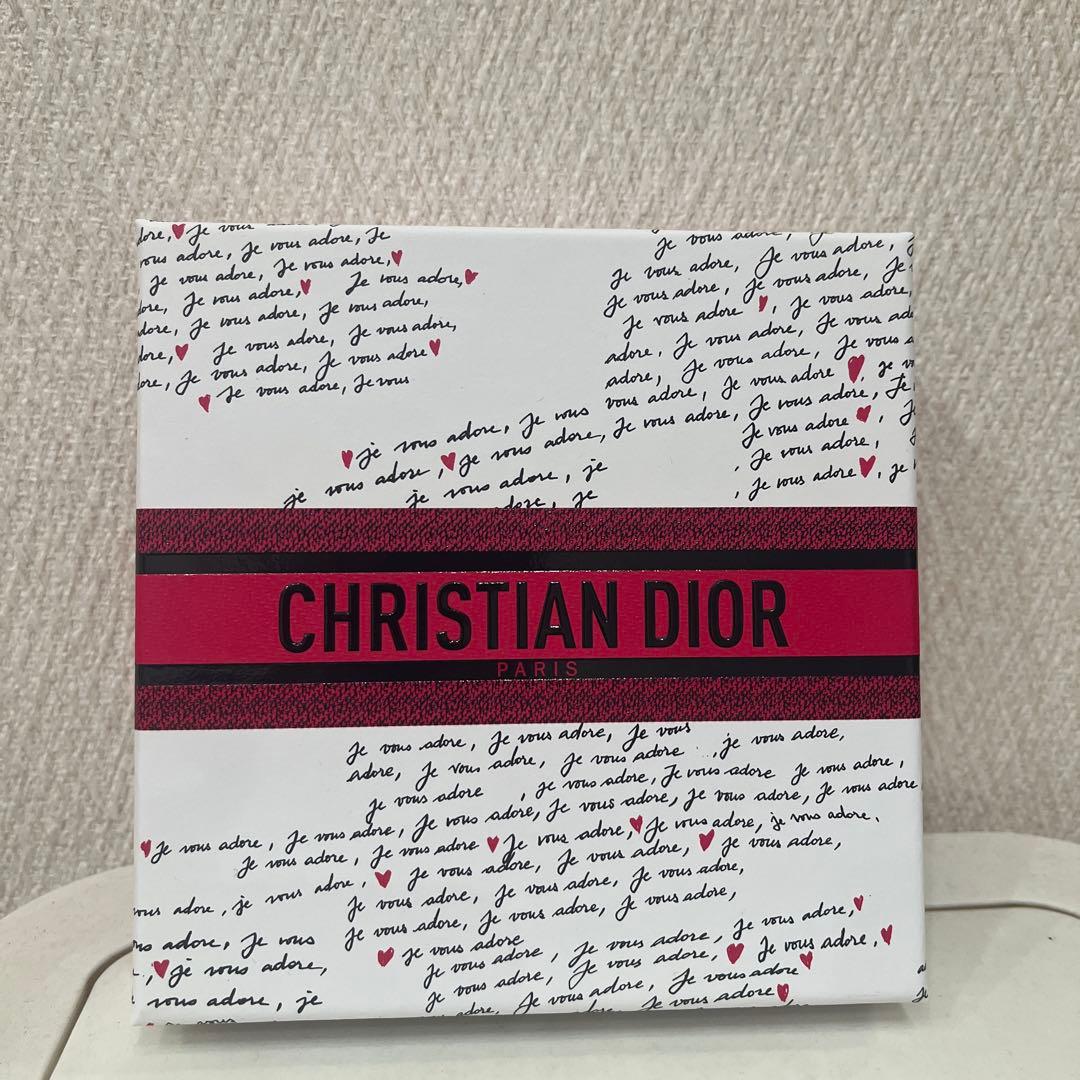 dore, ♥ Je vous adore,
vous adore, Je vous adore, Je
Je vous adore, Je vous adore, ♥
dore, Je vous adore, ♥ Je vous adore, ♥
dore, Je vous adore, Je vous adore,
dore, ♥ Je vous adore, Je vous adore,
dore, Je vous adore, Je vous adore ♥
♥ Je vous adore, Je vous
Je vous adore,
Je vous adore, Je vous adore,
Je vous adore, Je vous adore, Je
Je vous adore ♥, Je vous adore,
adore, Je vous adore, Je vous ado
adore, Je vous adore, Je vous adore
Je vous adore, Je vous adore ♥, je vo
♥ je vous adore, Je vous adore, Je vous adore, Je
je vous adore, ♥ Je vous adore, Je vous adore, Je vous adore ♥,
je vous adore, je
, Je vous adore,
adore, je
, Je vous adore ♥, je
CHRISTIAN DIOR
PARIS
Je vous adore, Je vous adore, Je vous
adore, Je vous adore, Je vous adore , je vous adore,
Je vous adore , je vous adore, Je vous adore Je vous adore,
♥ Je vous adore, Je vous adore, Je vous adore, Je vous adore, Je vous adore, Je vous adore
Je vous adore, Je vous adore ♥ Je vous adore, ♥ Je vous adore, je vous adore,
vous adore, je vous adore, ♥ Je vous adore, Je vous adore, ♥ Je vous adore,
Je vous adore, Je vous adore, Je vous adore,
Je vous adore, Je vous adore, Je vous adore,
us adore, Je vous
♥ Je vous adore
, ♥ je vous adore,
Je vous adore, Je vous adore, Je vous adore, ♥
vous adore, je
Je vous adore, Je vous adore, ♥ Je vous adore, ♥
Je vous adore, Je vous adore, Je vous adore ♥
Je vous adore, Je vous adore ♥